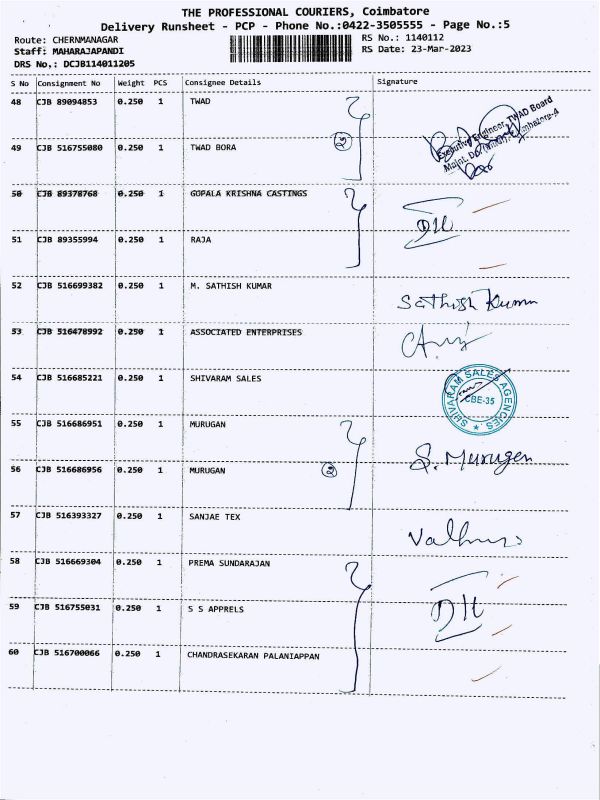 THE PROFESSIONAL COURIERS, Coimbatore
Delivery Runsheet - PCP - Phone No.:0422-3505555 - Page No.:5
Route: CHERNMANAGAR RS No.: 1140112
Staff: MAHARAJAPANDI RS Date: 23-Mar-2023
DRS No,: DCJB114011205
S No Consignment No Weight PCS Consignee Details Signature
48 CJB 89094853 0.250 1 TWAD
Executive Engineer, TWAD Board
49 CJB 516755080 0.250 1 TWAD BORA
2
50 CJB 89378768 0.250 1 GOPALA KRISHNA CASTINGS
51 CJB 89355994 0.250 1 RAJA
52 CJB 516699382 0.250 1 M. SATHISH KUMAR
Sathish Kumar
53 CJB 516478992 0.250 1 ASSOCIATED ENTERPRISES
54 CJB 516685221 0.250 1 SHIVARAM SALES
SHIVARAM SALES AGENCIES
CBE-35
55 CJB 516686951 0.250 1 MURUGAN
S. Murugen
56 CJB 516686956 0.250 1 MURUGAN
2
57 CJB 516393327 0.250 1 SANJAE TEX
58 CJB 516669304 0.250 1 PREMA SUNDARAJAN
59 CJB 516755031 0.250 1 S S APPRELS
60 CJB 516700066 0.250 1 CHANDRASEKARAN PALANIAPPAN